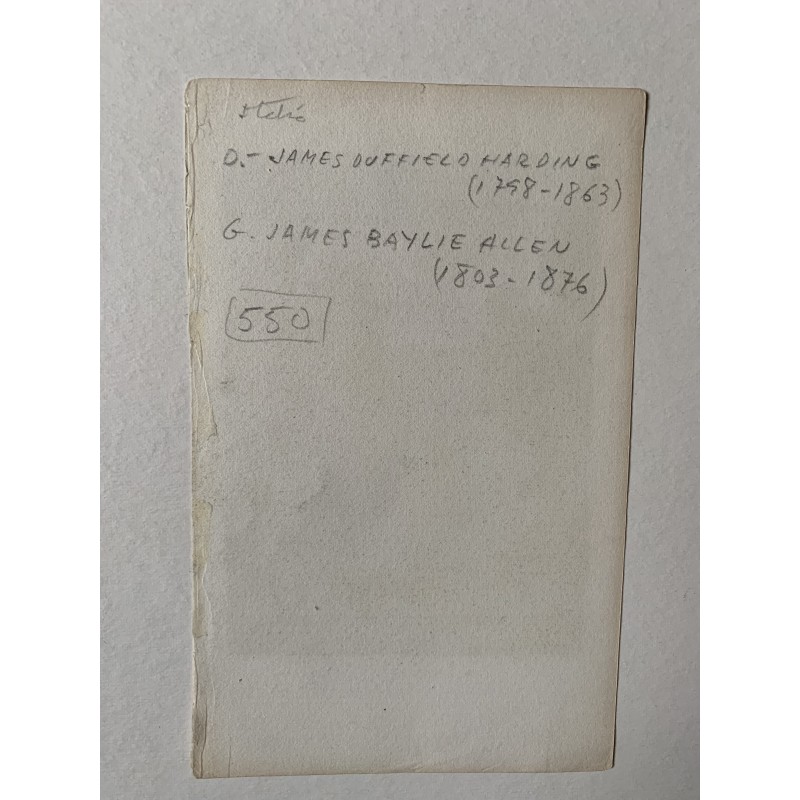 D.- JAMES DUFFIELD HARDING
(1798-1863)
G. JAMES BAYLIE ALLEN
(1803-1876)
550